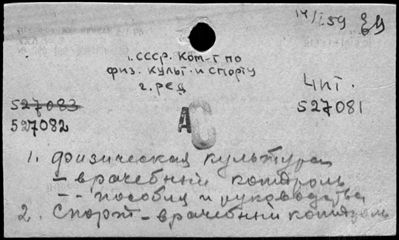 14/I 59
1. СССР. Ком-т по
физ. культ. и спорту
2. ред
Чит.
527081
527083
527082
АС
1. физическая культура
- врачебный контроль
-- пособия и руководства
2. Спорт - врачебный контроль